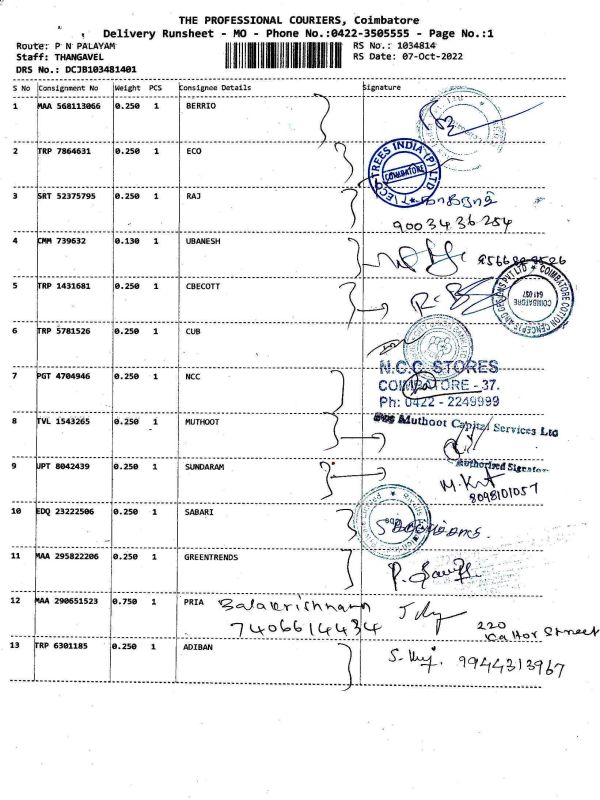 THE PROFESSIONAL COURIERS, Coimbatore
Delivery Runsheet - MO - Phone No.:0422-3505555 - Page No.:1
Route: P N PALAYAM RS No.: 1034814
Staff: THANGAVEL RS Date: 07-Oct-2022
DRS No.: DCJB103481401
S No Consignment No Weight PCS Consignee Details Signature
1 MAA 568113066 0.250 1 BERRIO
2 TRP 7864631 0.250 1 ECO
ECO TREES INDIA (P) LTD COIMBATORE
3 SRT 52375795 0.250 1 RAJ
9003436254
4 CMM 739632 0.130 1 UBANESH
5 TRP 1431681 0.250 1 CBECOTT
COIMBATORE 641 037
6 TRP 5781526 0.250 1 CUB
N.C.C. STORES
7 PGT 4704946 0.250 1 NCC COIMBATORE - 37.
Ph: 0422 - 2249999
8 TVL 1543265 0.250 1 MUTHOOT Muthoot Capital Services Ltd
Authorised Signator
9 UPT 8042439 0.250 1 SUNDARAM
8098101057
10 EDQ 23222506 0.250 1 SABARI
11 MAA 295822206 0.250 1 GREENTRENDS
12 MAA 290651523 0.750 1 PRIA Balakrishnann
7406614434 220
Street
13 TRP 6301185 0.250 1 ADIBAN 9944313967